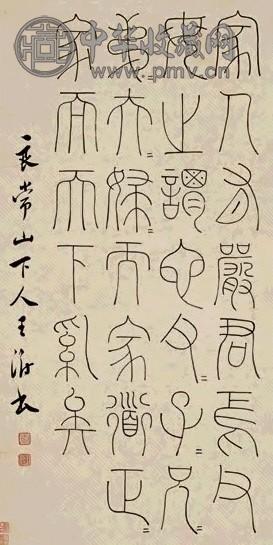 中华收藏网
www.pmv.cn
家人有嚴君焉父
母之謂也父〻子〻兄〻
弟〻夫〻婦〻而家道正〻
家而天下矣
良常山下人王澍書